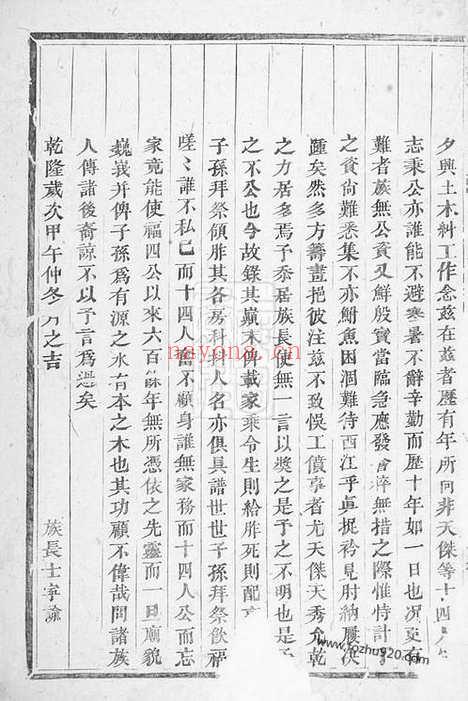 夕興土木料工作念茲在茲者歷有年所向非天傑等十四人
志秉公亦誰能不避寒暑不辭辛勤而歷十年如一日也況更有
難者族無公貲又鮮殷實當臨急應發倉猝無措之際惟恃計
之貲尚難悉集不亦鮒魚困涸難待西江乎真捉衿見肘納屨決
踵矣然多方籌畫把彼注茲不致悞工僨事者尤天傑天秀允乾
之力居多焉予忝居族長使無一言以獎之是予之不明也是
之不公也今故錄其巔末俾載家乘令生則給胙死則配
子孫拜祭領胙其各房科斗人名亦俱具譜世世子孫拜祭飲福
嗟々誰不私已而十四人富不顧身誰無家務而十四人公而忘
家竟能使福四公以來六百餘年無所憑依之先靈而一旦廟貌
巍峩并俾子孫為有源之水有本之木也其功顧不偉哉閤諸族
人傳諸後裔諒不以予言為過矣
乾隆歲次甲午仲冬月之吉
族長士寧諭
nayona.cn
www.fozhu920.com